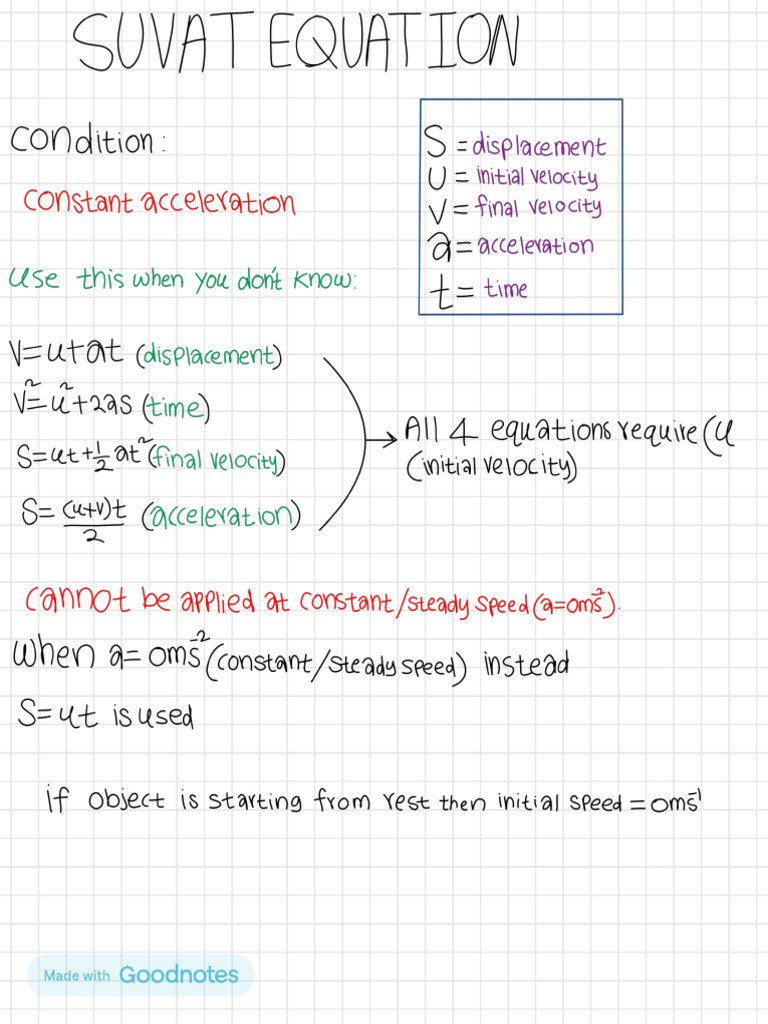 SUVAT EQUATION
Condition:
Constant acceleration
S = displacement
U = initial velocity
V = final velocity
a = acceleration
t = time
Use this when you don't know:
V=u+at (displacement)
V²=u²+2as (time)
S=ut+½at² (final velocity)
S=(u+v)t/2 (acceleration)
All 4 equations require (u
(initial velocity)
cannot be applied at constant/steady speed (a=0ms⁻²).
When a=0ms⁻² (constant/steady speed) instead
S=ut is used
if object is starting from rest then initial speed = 0ms⁻¹
Made with Goodnotes